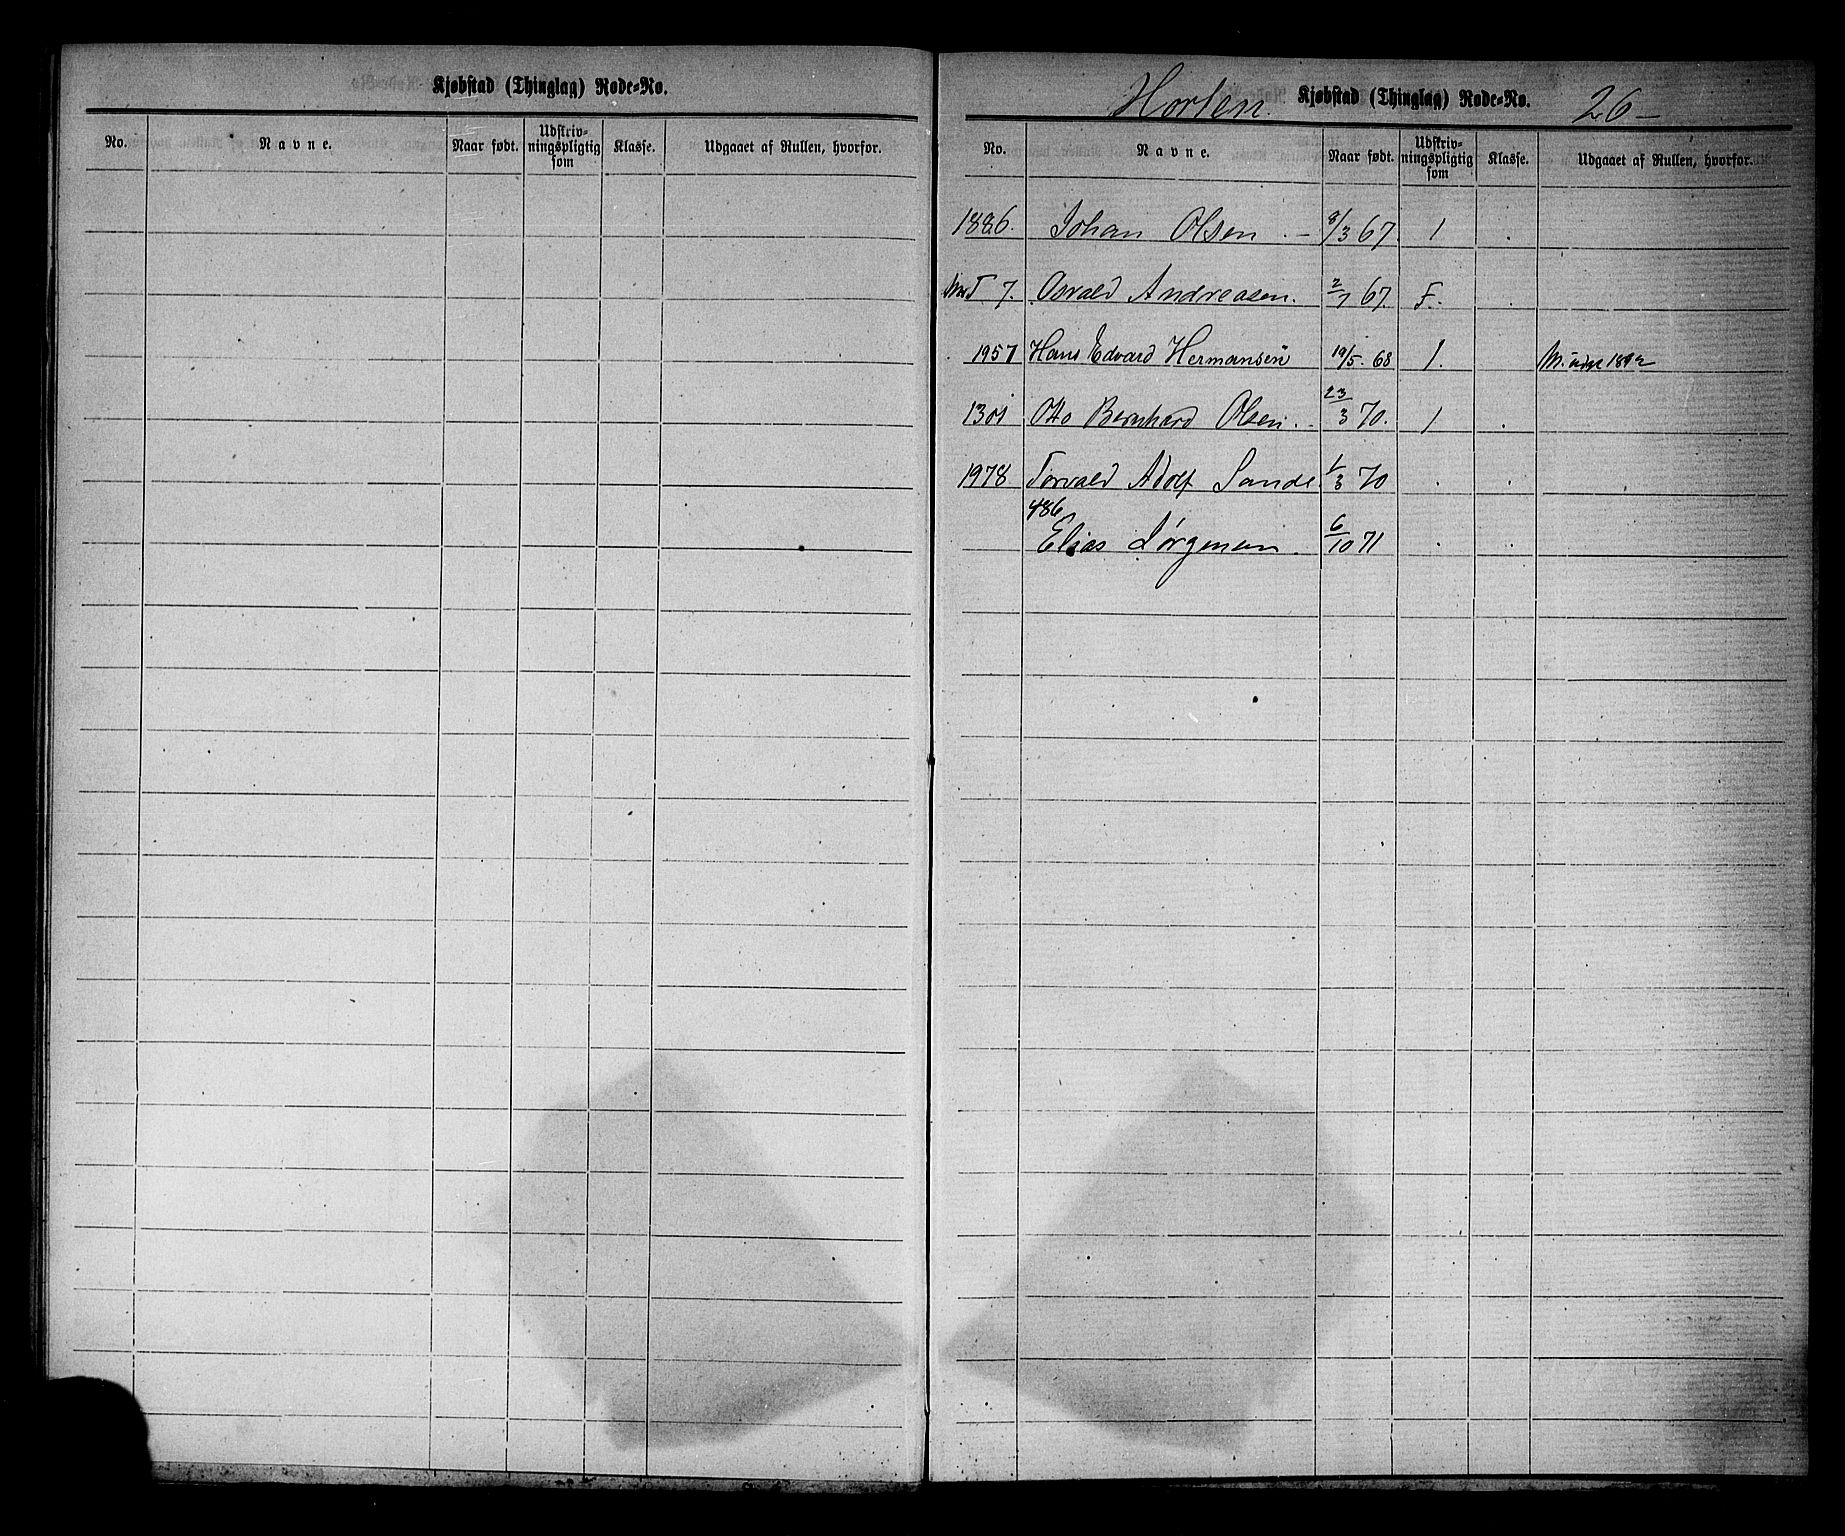 Kjøbstad (Thinglag) Rode-No.
No. Navne. Naar født. Udskrivningspligtig som Klasse. Udgaaet af Rullen, hvorfor.
Horten. Kjøbstad (Thinglag) Rode-No. 26-
No. Navne. Naar født. Udskrivningspligtig som Klasse. Udgaaet af Rullen, hvorfor.
1886. Johan Olsen. - 8/3 67. 1
T 7. Osvald Andreasen. 2/7 67. F.
1957 Hans Edvard Hermansen 19/5. 68 1. 1892
1301 Otto Bernhard Olsen. 23/3 70. 1
1978 Torvald Adolf Sande 1/3 70
486
Elias Jørgensen. 6/10 71